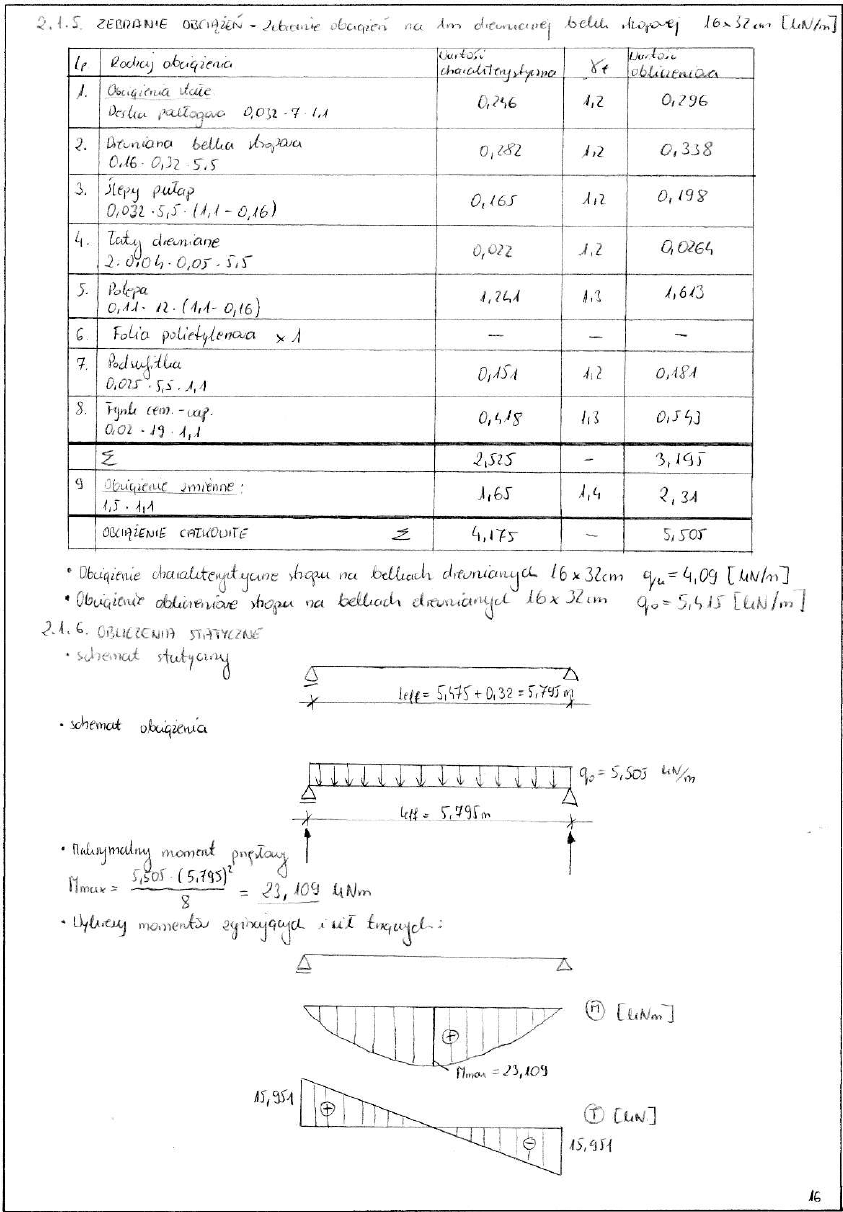 2.1.5. ZEBRANIE OBCIĄŻEŃ - zebranie obciążeń na 1m drewnianej belki stropowej 16x32cm [kN/m]
Lp Rodzaj obciążenia Wartość charakterystyczna γf Wartość obliczeniowa
1. Obciążenia stałe
Deska podłogowa 0,032·7·1,1 0,246 1,2 0,296
2. Drewniana belka stropowa
0,16·0,32·5,5 0,282 1,2 0,338
3. Ślepy pułap
0,032·5,5·(1,1-0,16) 0,165 1,2 0,198
4. Łaty drewniane
2·0,04·0,05·5,5 0,022 1,2 0,0264
5. Polepa
0,11·12·(1,1-0,16) 1,241 1,3 1,613
6. Folia polietylenowa x1 — — —
7. Podsufitka
0,025·5,5·1,1 0,151 1,2 0,181
8. Tynk cem.-wap.
0,02·19·1,1 0,418 1,3 0,543
Σ 2,525 - 3,195
9 Obciążenie zmienne:
1,5·1,1 1,65 1,4 2,31
OBCIĄŻENIE CAŁKOWITE Σ 4,175 — 5,505
• Obciążenie charakterystyczne stropu na belkach drewnianych 16x32cm qk=4,09 [kN/m]
• Obciążenie obliczeniowe stropu na belkach drewnianych 16x32cm qo=5,415 [kN/m]
2.1.6. OBLICZENIA STATYCZNE
• schemat statyczny
leff = 5,475 + 0,32 = 5,795m
• schemat obciążenia
qo = 5,505 kN/m
leff = 5,795m
• Maksymalny moment przęsłowy
Mmax = 5,505·(5,795)²/8 = 23,109 kNm
• Wykresy momentów zginających i sił tnących:
M [kNm]
+
Mmax = 23,109
15,951
+
T [kN]
-
15,951
16